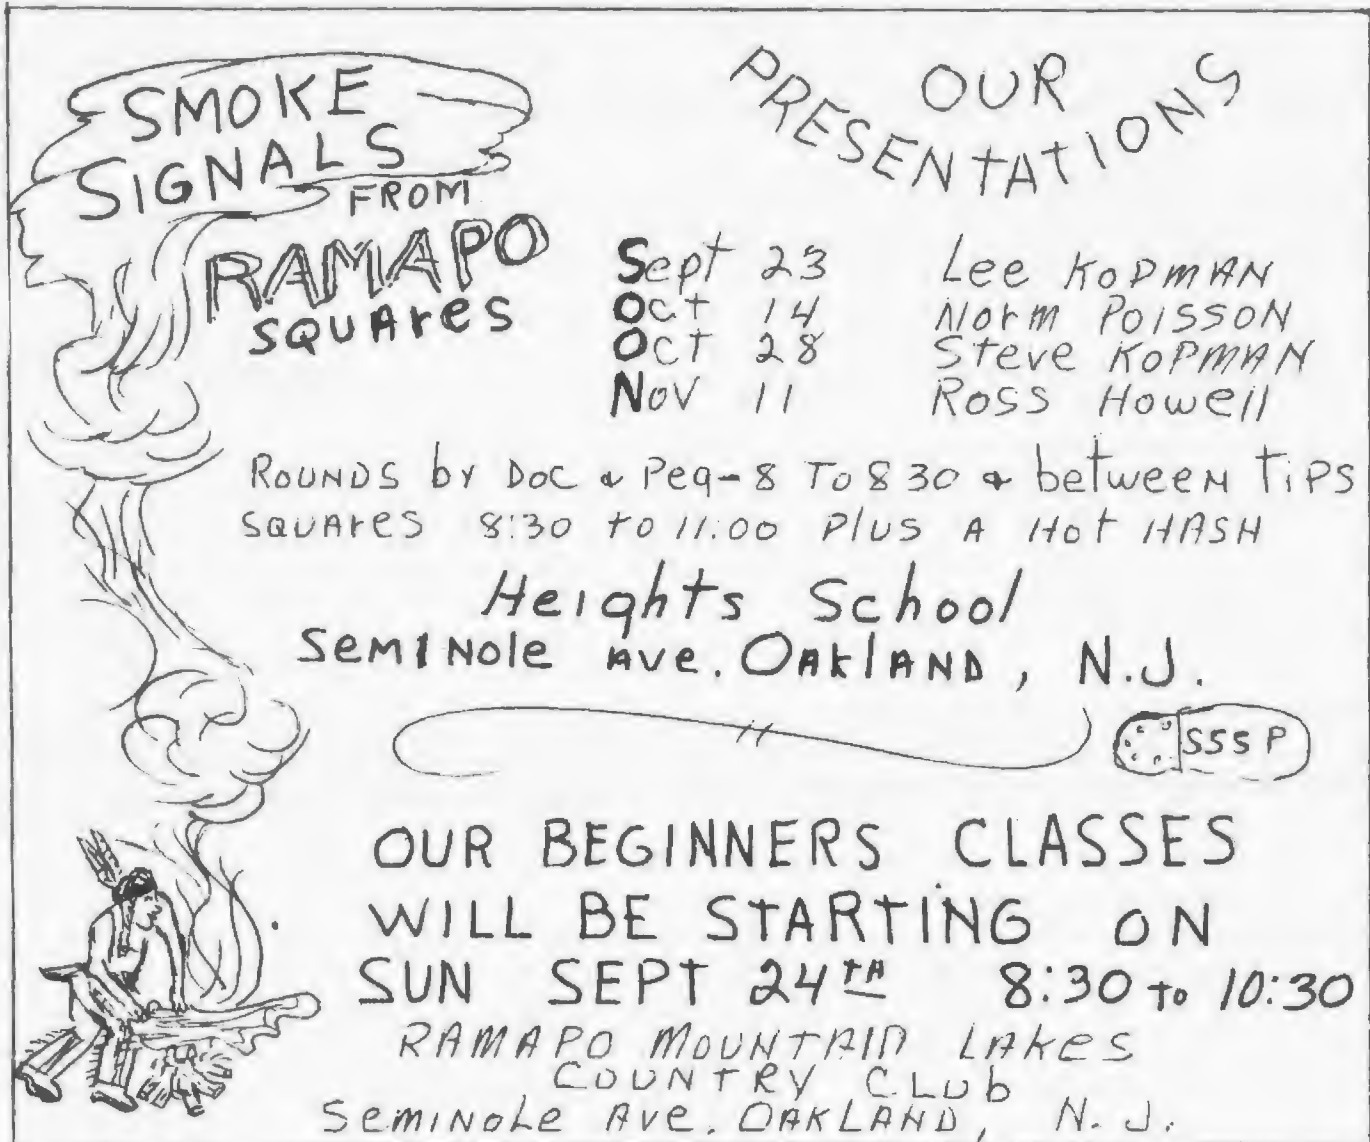 SMOKE
SIGNALS
FROM
RAMAPO
SQUARES
OUR
PRESENTATIONS
Sept 23 Lee KOPMAN
Oct 14 Norm POISSON
Oct 28 Steve KOPMAN
Nov 11 Ross Howell
ROUNDS by DOC & Peg-8 TO 8 30 & between TIPS
SQUARES 8:30 to 11:00 PLUS A HOT HASH
Heights School
SEMINOLE AVE. OAKLAND, N.J.
SSSP
OUR BEGINNERS CLASSES
WILL BE STARTING ON
SUN SEPT 24TH 8:30 to 10:30
RAMAPO MOUNTAIN LAKES
COUNTRY CLUb
SEMINOLE AVE. OAKLAND, N. J.